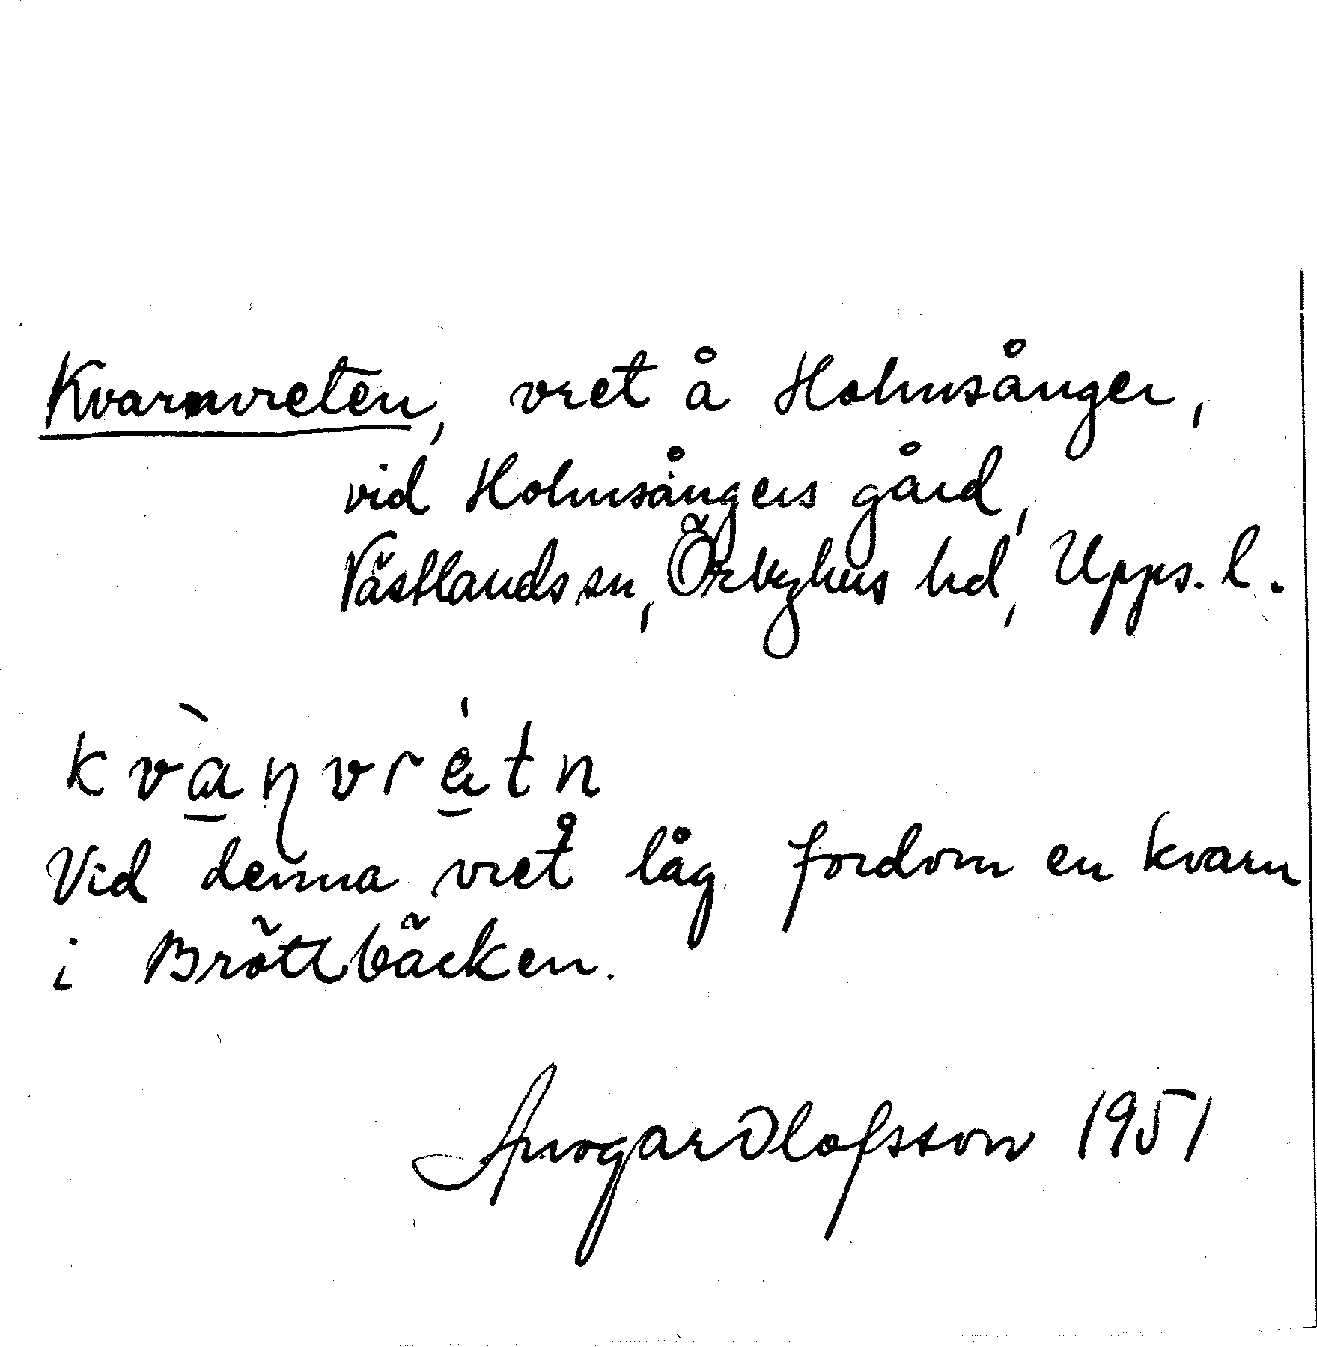 Kvarnvreten, vret å Holmsånger,
vid Holmsångers gård,
Västlands sn, Örbyhus hd, Upps. l.
kvànvrétn
Vid denna vret låg fordom en kvarn
i Bröttbäcken.
Olofsson 1951